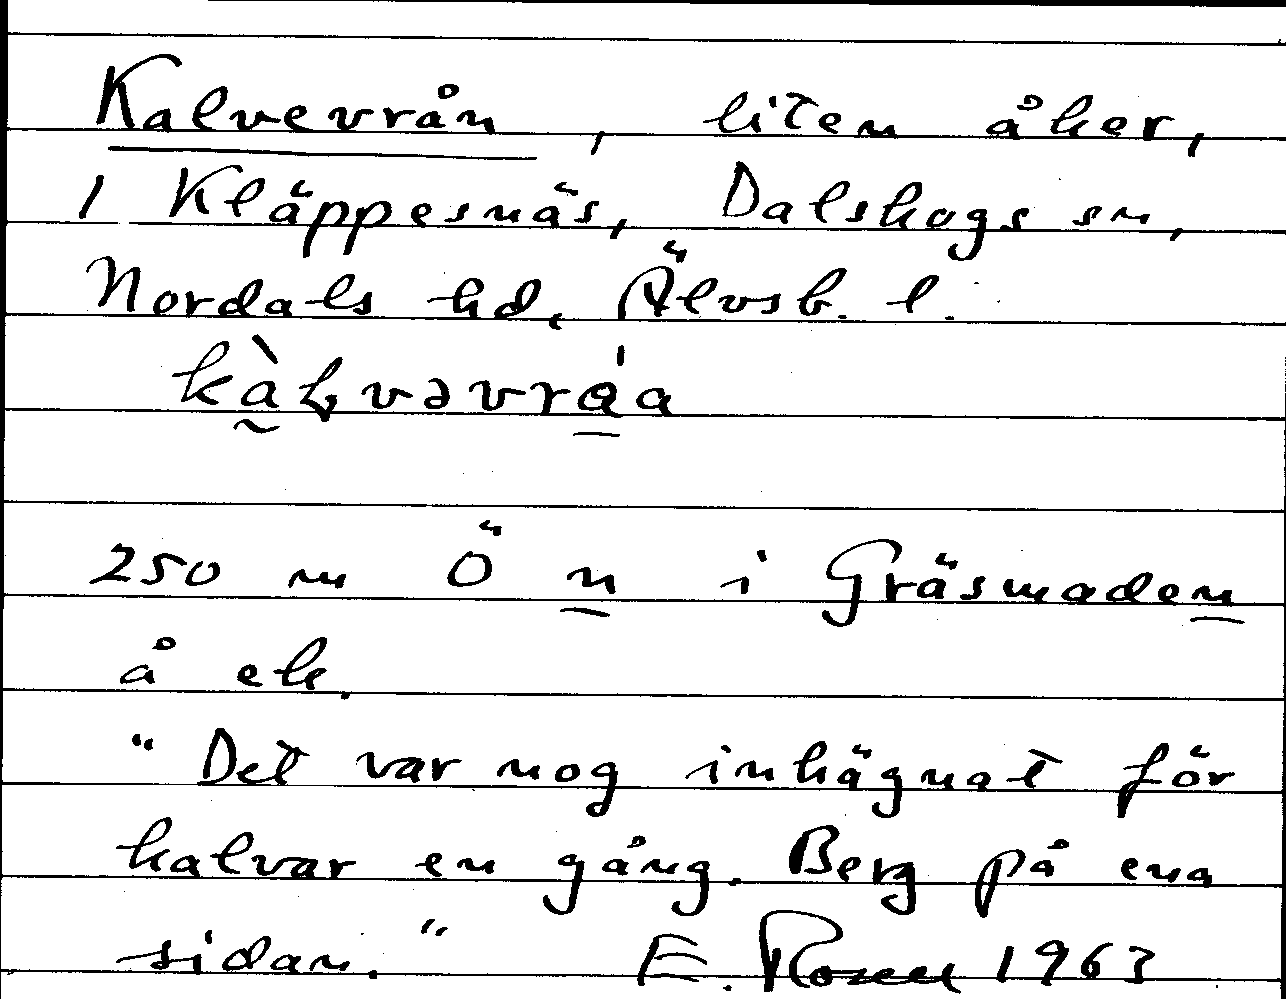 Kalvevrån, liten åker,
1 Kläppesnäs, Dalskogs sn,
Nordals hd, Älvsb. l.
kàɫvəvráa
250 m Ö n i Gräsmaden
å ek.
"Det var nog inhägnat för
kalvar en gång. Berg på ena
sidan." E. Rosell 1963